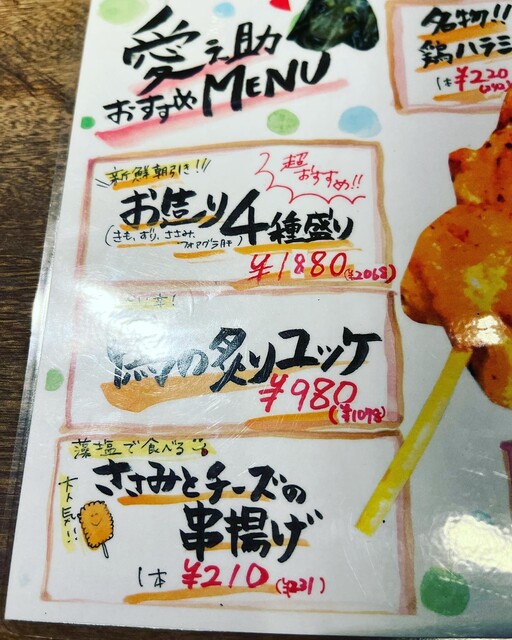 愛之助
おすすめMENU
名物!!
鶏ハラミ
1本¥220
(242)
新鮮朝引き!!
超
おすすめ!!
お造り4種盛り
(きも、ずり、ささみ、
フォアグラ肝)
¥1880(¥2068)
の炙りユッケ
¥980
(¥1078)
藻塩で食べる
大人気!!
ささみとチーズの
串揚げ
1本 ¥210(¥231)